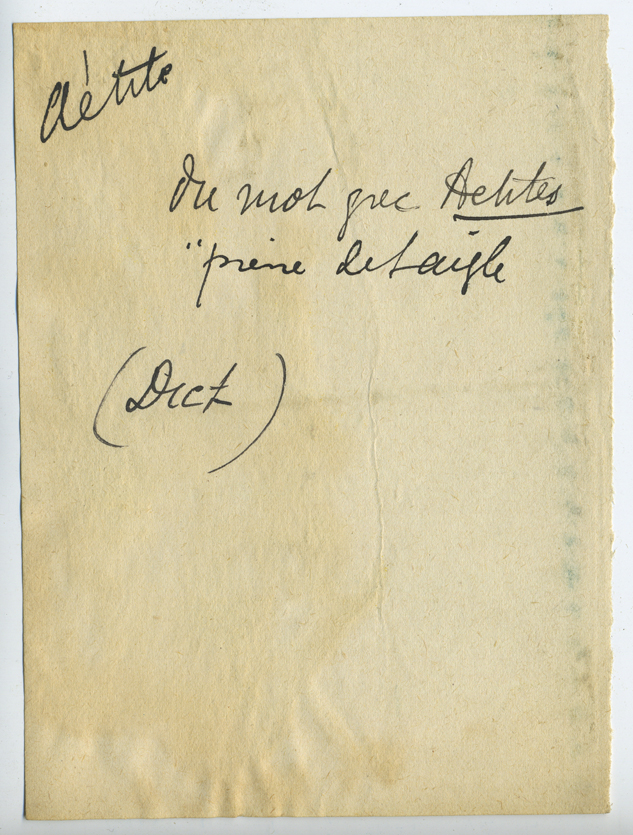 Aétite
Du mot grec Aetites
"pierre de l'aigle
(Dict)